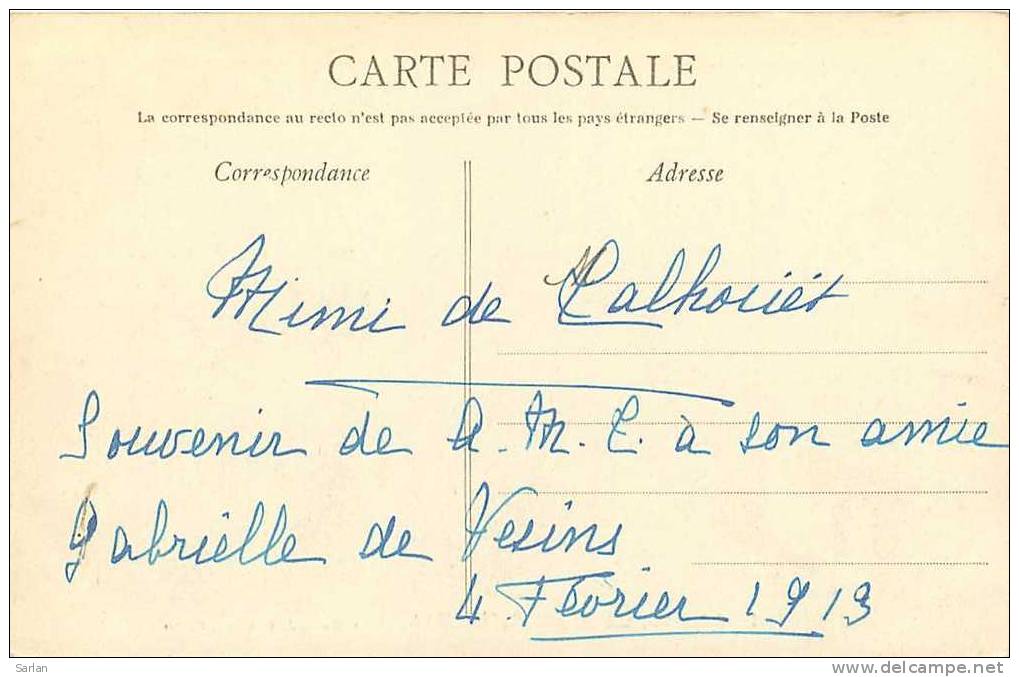 CARTE POSTALE
La correspondance au recto n'est pas acceptée par tous les pays étrangers — Se renseigner à la Poste
Correspondance
Adresse
Mimi de Calhoüet
Souvenir de A. M. C. à son amie
Gabrielle de Vesins
4 Février 1913
Sarlan
www.delcampe.net